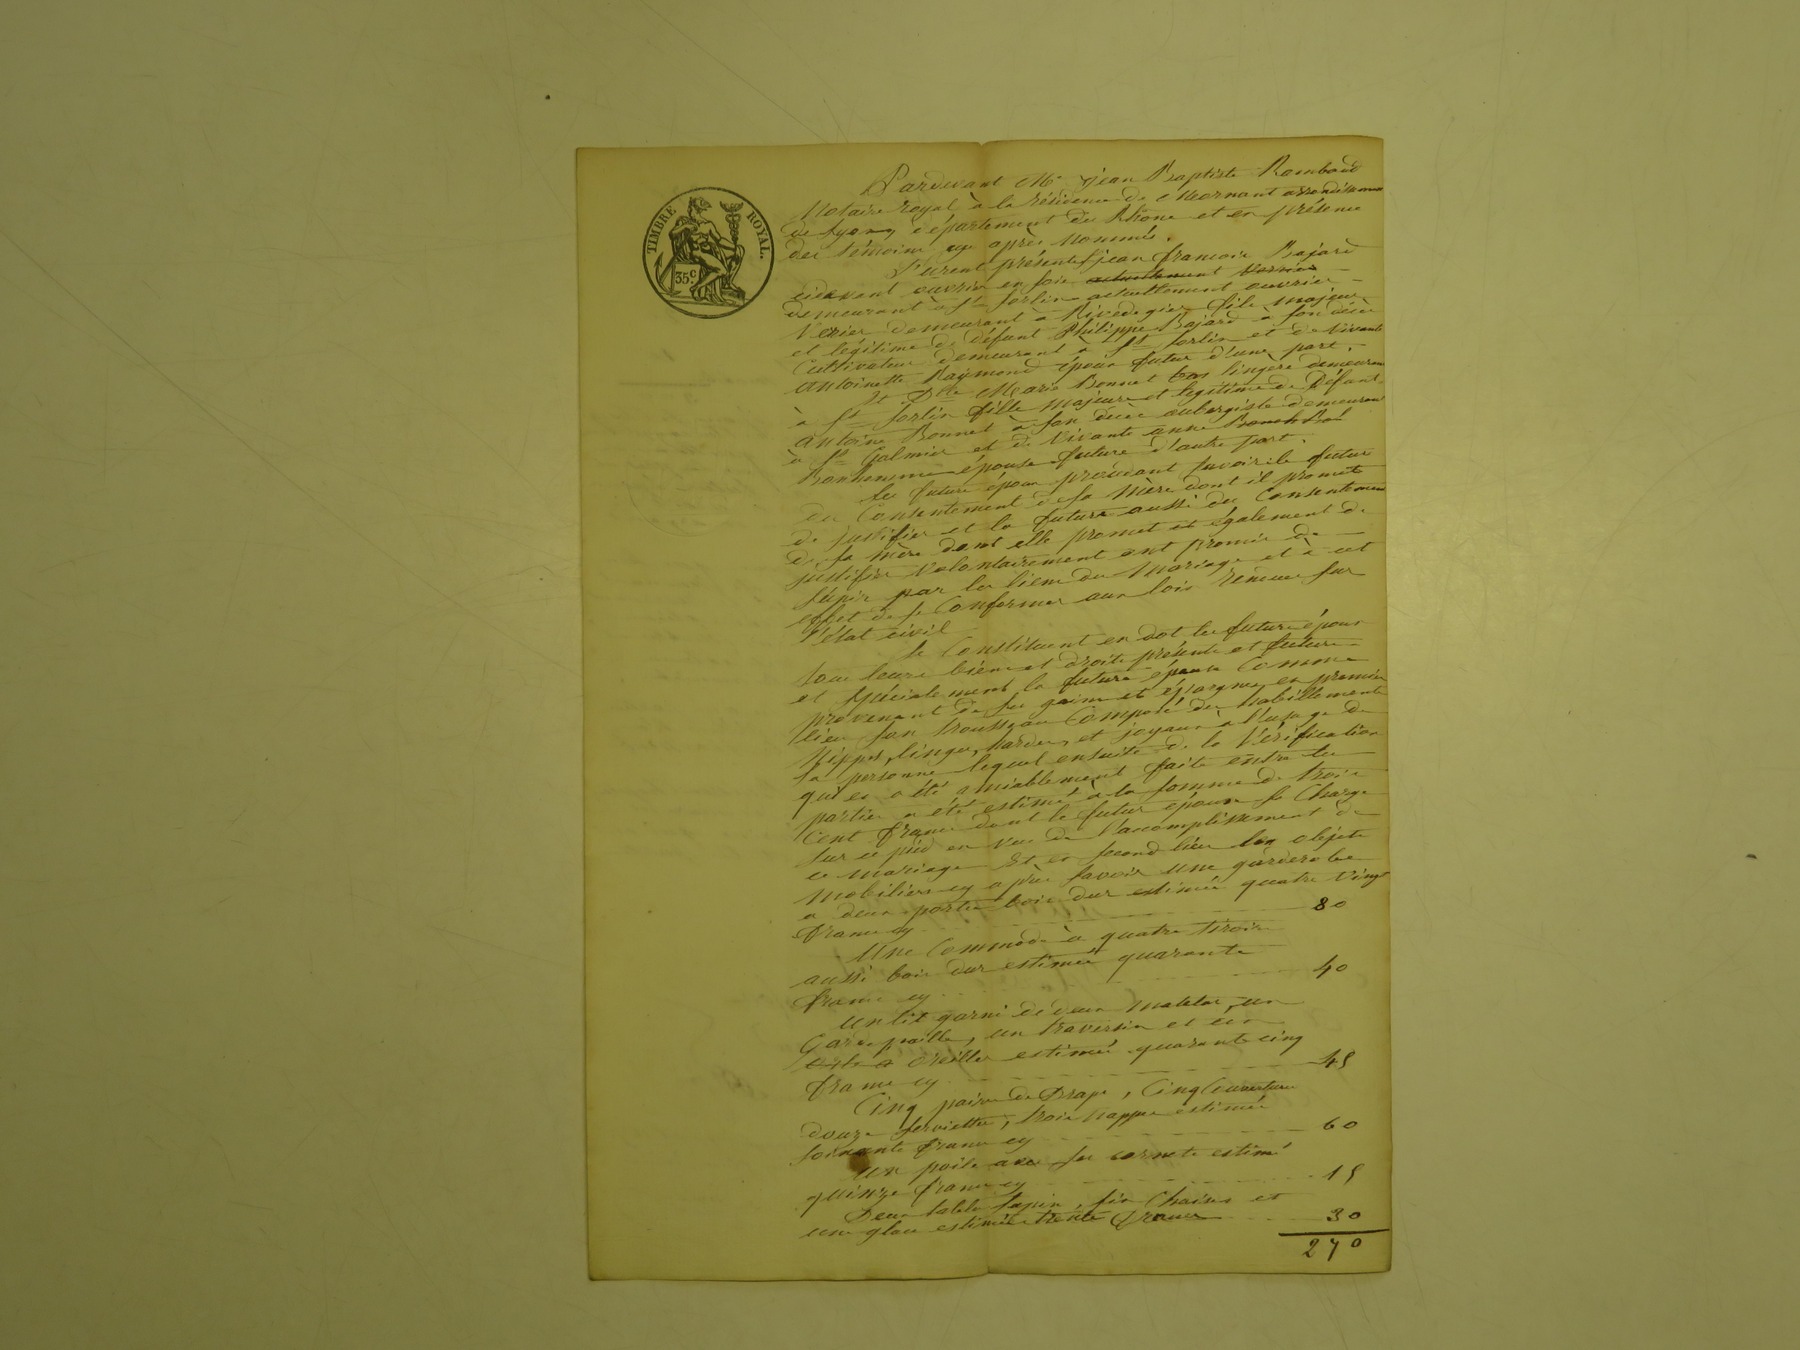 TIMBRE ROYAL.
35c.
Pardevant Me jean Baptiste Rambaud
Notaire royal à la résidence de Mornant arrondissement
de Lyon, département du Rhône et en présence
des témoins cy après nommés.
Furent présents jean francois Bajard
cidevant ouvrier en soie actuellement verrier
demeurant à St Sorlin actuellement ouvrier
Verier demeurant à Rivedegier fils majeur
et légitime de défunt Philippe Bajard à son décès
Cultivateur demeurant à St Sorlin et de vivante
Antoinette Raymond époux futur d'une part.
Et Dlle Marie Bonnet lingere demeurant
à St Sorlin fille majeure et legitime de Défunt
Antoine Bonnet à son décès aubergiste demeurant
à St Galmier et de Vivante anne
épouse future d'autre part.
les futurs époux procédant savoir le futur
du Consentement de sa Mère dont il promet
de justifier et la future aussi du Consentement
de sa mère dont elle promet et également de
justifier Volontairement ont promis de
s'unir par les liens du Mariage et à cet
effet de se Conformer aux lois rendues sur
l'état civil
Se Constituent en dot les futurs époux
tous leurs biens et droits présents et futurs
et spécialement la future épouse Comme
provenant de ses gains et épargnes en premier
lieu son trousseau Composé des habillements
Nippes, linges, hardes, et joyaux à l'usage de
sa personne lequel ensuite de la Vérification
qui en a été amiablement faite entre les
parties a été estimé à la somme de trois
Cent francs dont le futur époux se Charge
sur ce pied en vue de l'accomplissement de
ce mariage Et en second lieu les objets
mobiliers cy après savoir une garderobe
a deux portes bois dur estimée quatre Vingt
francs cy 80
Une Commode à quatre tiroirs
aussi bois dur estimée quarante
francs cy 40
un lit garni de deux matelas, un
Gardepaille, un traversin et un
oreiller estimé quarante cinq
francs cy 45
Cinq paires de Draps, Cinq Couvertures
douze serviettes, trois nappes estimées
soixante francs cy 60
un poile avec ses cornets estimé
quinze francs cy 15
Deux tables sapin, six Chaises et
une glace estimées trente francs 30
270